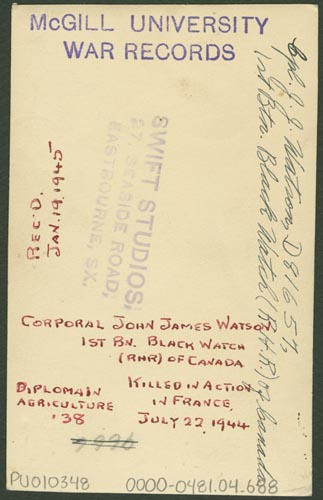 McGILL UNIVERSITY
WAR RECORDS
Cpl. J. J. Watson, D 81657,
1st Btn. Black Watch (R.H.R.) of Canada
SWIFT STUDIOS,
27, SEASIDE ROAD,
EASTBOURNE, SX.
REC'D.
JAN. 19, 1945
CORPORAL JOHN JAMES WATSON
1ST BN. BLACK WATCH
(RHR) OF CANADA
DIPLOMA IN
AGRICULTURE
'38
KILLED IN ACTION
IN FRANCE,
JULY 22, 1944
PU010348
0000-0481.04.688